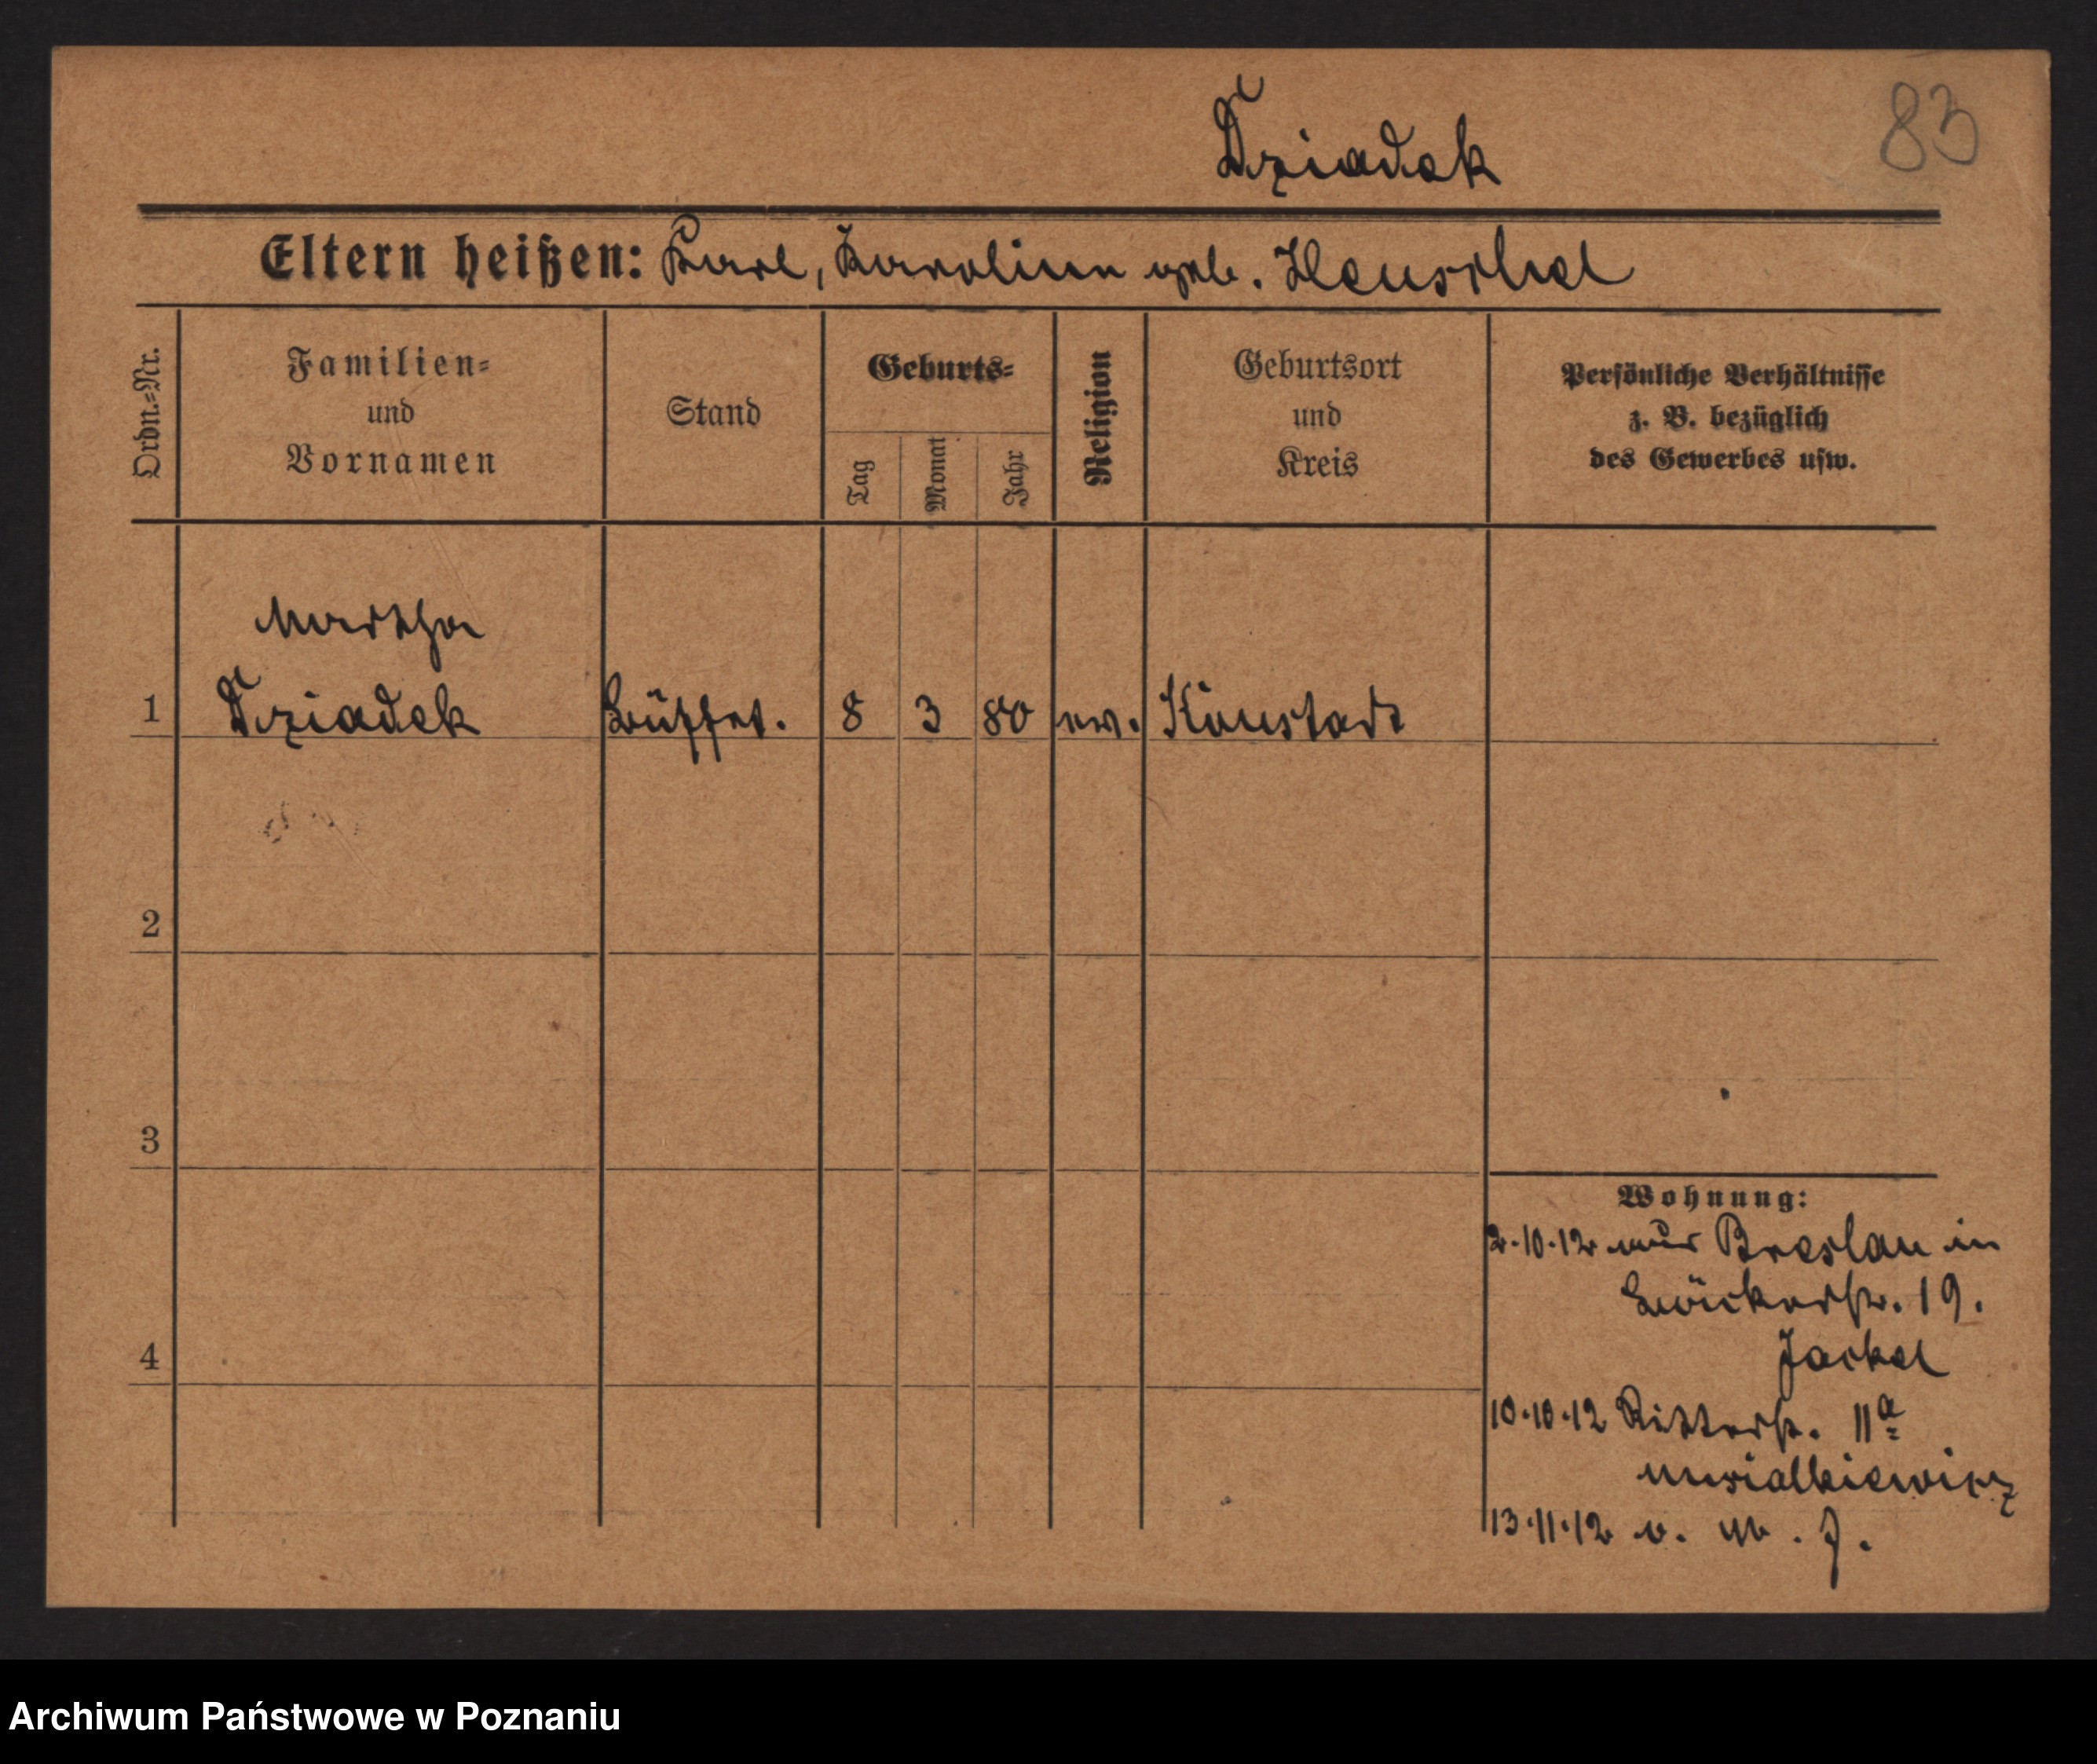 Dziadek
83
Eltern heißen: Karl, Karoline geb. Henschel
Ordn.=Nr.
Familien=
und
Vornamen
Stand
Geburts=
Tag
Monat
Jahr
Religion
Geburtsort
und
Kreis
Persönliche Verhältnisse
z. B. bezüglich
des Gewerbes usw.
Martha
1 Dziadek Büffet. 8 3 80 ev. Konstadt
2
3
4
Wohnung:
2.10.12 aus Breslau in
Bäckerstr. 19.
Jackel
10.10.12 Ritterstr. 11a
13.11.12 v.
Archiwum Państwowe w Poznaniu